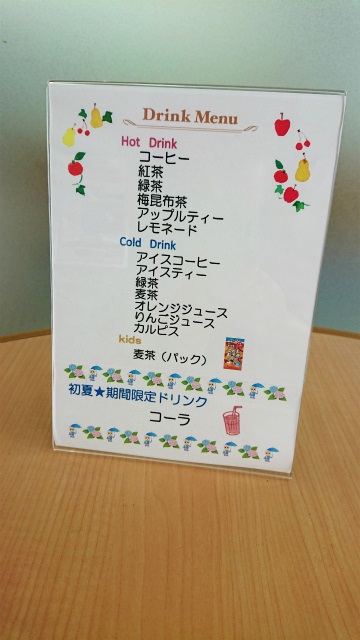 Drink Menu
Hot Drink
コーヒー
紅茶
緑茶
梅昆布茶
アップルティー
レモネード
Cold Drink
アイスコーヒー
アイスティー
緑茶
麦茶
オレンジジュース
りんごジュース
カルピス
kids
麦茶（パック）
初夏★期間限定ドリンク
コーラ